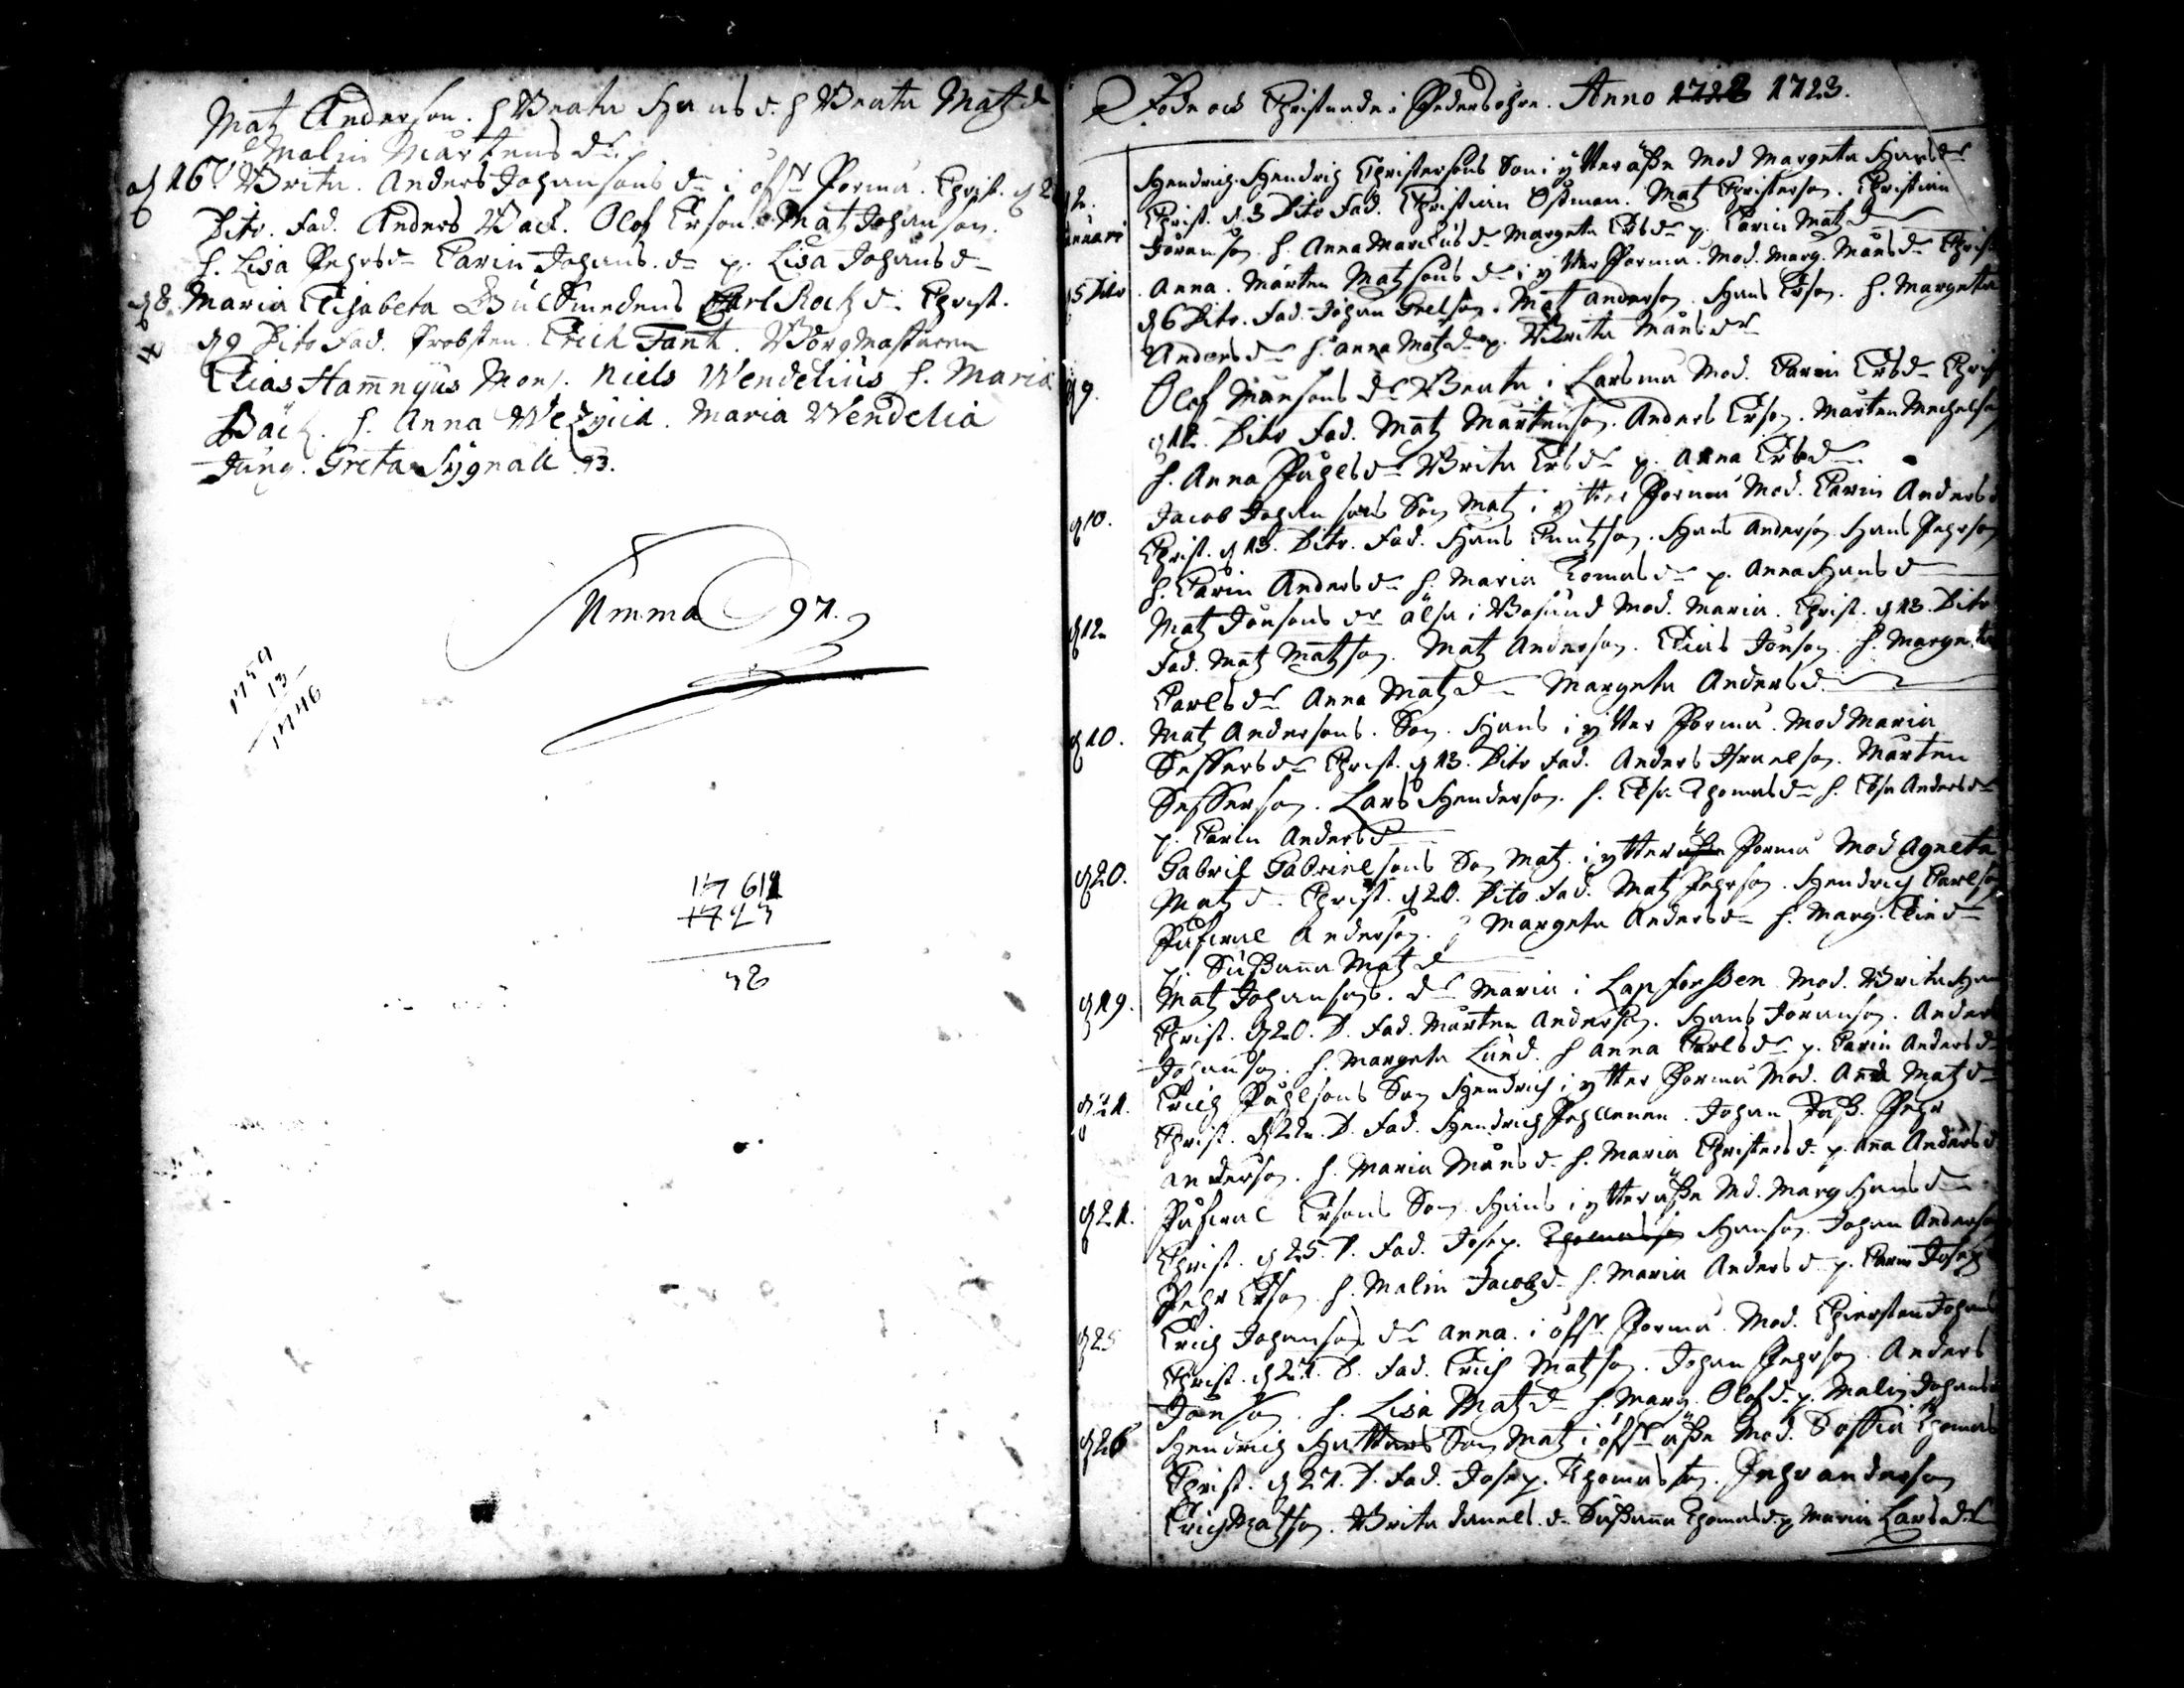 Matz Anderson. h Breata Hansd. h Breata Matzd
Malin Mårtensdr
d 16. Brita. Anders Johansons dr i öfr Pormå. Christ. d 2
Dito. fad. Anders Back. Olof Erson. Matz Johanson.
h. Lisa Pehrsdr Carin Johans.dr p. Lisa Johansdr
d 8. Maria Elisabeta Gulsmedens Carl Rock dr Christ.
d 9 Dito fad. Probsten Erich Fant. Borgmästaren
Elias Hamnyus Mons. Niels Wendelius h. Maria
Bäck. h. Anna Maria Wendelia
Jung. Greta Sygnall 93.
Summa 97.
1759
13
1746
1761
1723
38
Föde och Christnade i Pedersöhre. Anno 1722 1723.
d 2. Hendrich Hendrich Christersons Son i ytter åsse Mod Margeta Hansdr
Januari Christ. d. 3 Dito fad. Christian Östman. Matz Christerson. Christian
Joranson h. Anna Marcusdr Margeta Ersdr p. Carin Matzdr
d 5 Dito. Anna. Mårten Matzsons dr i ytter Pormå. Mod. Marg. Månsdr Christ
d 6 Dito. fad. Johan Grelson. Matz Anderson. Hans Erson. h. Margeta
Andersdr h. Anna Matzdr p. Brita Månsdr
d 9. Olof Månsons dr Breata i Larsmå Mod. Carin Ersdr Christ
d 12. Dito fad. Matz Mårtenson. Anders Erson. Mårten Mechelson
h. Anna Påhlsdr Brita Ersdr p. Anna Ersdr
d 10. Jacob Johansons Son Matz i ytter Pormå Mod. Carin Andersd
Christ. d 13. Dito. fad. Hans Cnutson. Hans Anderson Hans Pehrson
h. Carin Andersdr h. Maria Tomasdr p. Anna Hansd
d 12 Matz Jonsons dr Älsa i Bosund Mod. Maria. Christ. d 13. Dito
fad. Matz Matzson. Matz Anderson. Elias Jonson h. Margeta
Carlsdr Anna Matzdr Margeta Andersd
d 10. Matz Andersons. Son. Hans i ytter Pormå. Mod Maria
Seffersdr Christ. d 13. Dito fad. Anders Israelson. Mårten
Sefferson. Lars Henderson. h. Elsa Thomasdr h. Elsa Andersdr
p. Carin Andersd
d 20. Gabriel Gabrielsons Son Matz i ytter åsse Pormå Mod Agneta
Matzd Christ. d 20. Dito fad. Matz Pehrson. Hendrich Carlson
Påsvall Anderson. h Margeta Andersdr h. Marg. Eliedr
p. Sussanna Matzd
d 19. Matz Johansons. dr Maria i Lapforssen Mod. Brita Hans
Christ. d 20. D. fad. Mårten Anderson. Hans Joranson. Anders
Johanson. h. Margeta Lund. h Anna Carlsdr p. Carin Andersd
d 21. Erich Påhlsons Son Hendrich i ytter Pormå Mod. Anna Matzdr
Christ. d 22. D. fad. Hendrich Johan Pehr
anderson. h. Maria Månsd. h. Maria Christersd. p. Ana Andersd
d 21. Påsval Ersons Son Hans i ytter åsse Md. Marg Hansdr
Christ. d 25. D. fad. Josep. Thomasson Hanson. Johan Anderson
Pehr Erson h. Malin Jacobzd h. Maria Andersd p. Carin Josep
d 25 Erich Johansons dr Anna i öfr Pormå. Mod. Chirstan Johans
Christ. d 27. D. fad. Erich Matzson. Johan Pehrson. Anders
Jonson. h. Lisa Matzdr h. Marg. Olofd. p. Malin Johans
d 26 Hendrich Son Matz i öfr åsse Mod. Soffia Thomas
Christ. d 27. D. fad. Josep. Thomasson. Pehr anderson
Erich Matson. Brita danels.dr Sussanna Thomasdr p Maria Larsdr